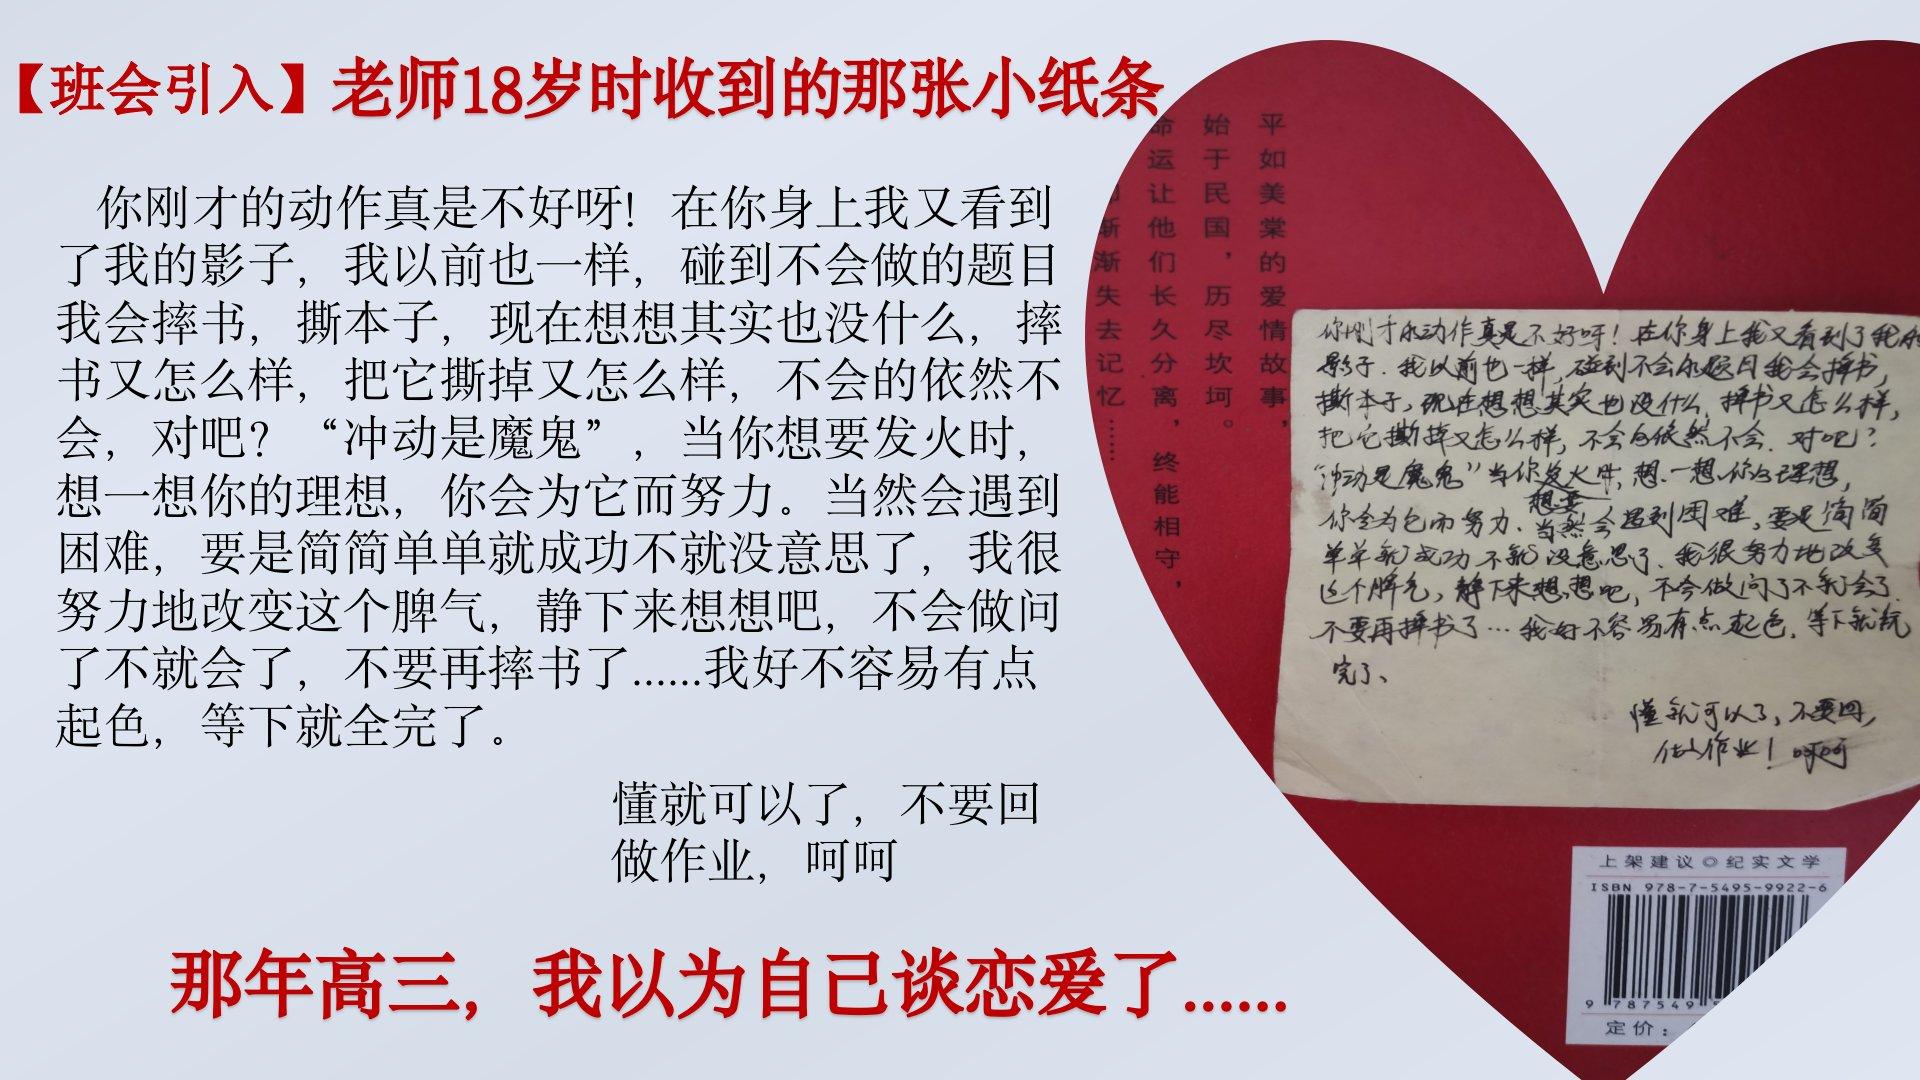 【班会引入】老师18岁时收到的那张小纸条
你刚才的动作真是不好呀！在你身上我又看到
了我的影子，我以前也一样，碰到不会做的题目
我会摔书，撕本子，现在想想其实也没什么，摔
书又怎么样，把它撕掉又怎么样，不会的依然不
会，对吧？“冲动是魔鬼”，当你想要发火时，
想一想你的理想，你会为它而努力。当然会遇到
困难，要是简简单单就成功不就没意思了，我很
努力地改变这个脾气，静下来想想吧，不会做问
了不就会了，不要再摔书了......我好不容易有点
起色，等下就全完了。
懂就可以了，不要回
做作业，呵呵
那年高三，我以为自己谈恋爱了......
平如美棠的爱情故事，
始于民国，历尽坎坷。
命运让他们长久分离，终能相守，
却渐渐失去记忆……
你刚才的动作真是不好呀！在你身上我又看到了我的
影子．我以前也一样，碰到不会的题目我会摔书，
撕本子，现在想想其实也没什么，摔书又怎么样，
把它撕掉又怎么样，不会的依然不会．对吧？
“冲动是魔鬼”当你想要发火时，想一想你的理想，
你会为它而努力．当然会遇到困难，要是简简
单单就成功不就没意思了．我很努力地改变
这个脾气，静下来想想吧，不会做问了不就会了．
不要再摔书了…我好不容易有点起色，等下就玩
完了、
懂就可以了，不要回，
做作业！呵呵
上架建议◎纪实文学
ISBN 978-7-5495-9922-6
9 787549
定价：